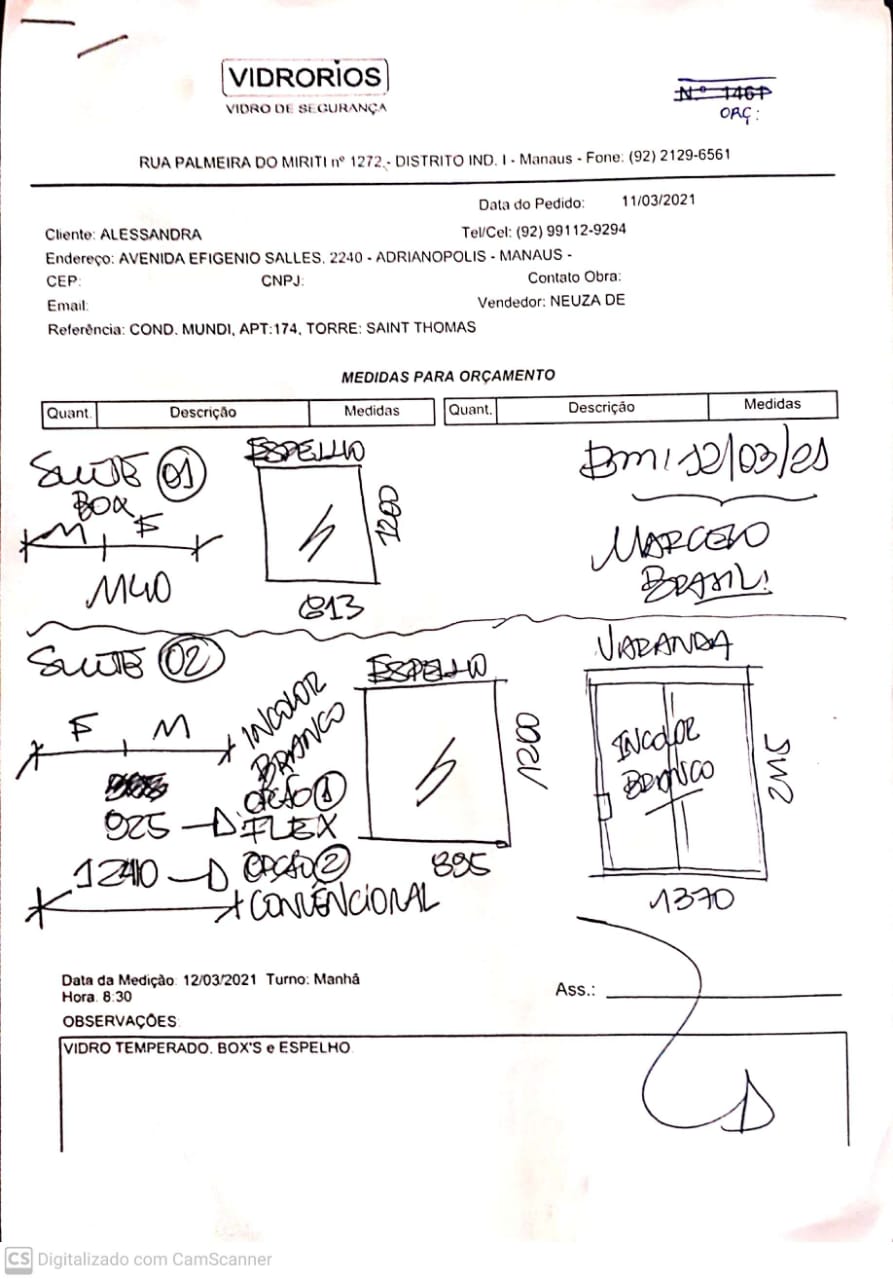 VIDRORIOS
VIDRO DE SEGURANÇA
Nº 1461
ORÇ:
RUA PALMEIRA DO MIRITI nº 1272,- DISTRITO IND. I - Manaus - Fone: (92) 2129-6561
Data do Pedido: 11/03/2021
Cliente: ALESSANDRA Tel/Cel: (92) 99112-9294
Endereço: AVENIDA EFIGENIO SALLES, 2240 - ADRIANOPOLIS - MANAUS -
CEP: CNPJ: Contato Obra:
Email: Vendedor: NEUZA DE
Referência: COND. MUNDI, APT:174, TORRE: SAINT THOMAS
MEDIDAS PARA ORÇAMENTO
Quant. Descrição Medidas Quant. Descrição Medidas
SUITE 01
BOX
M F
1140
ESPELHO
1200
813
BM: 12/03/21
MARCELO
BRASIL!
SUITE 02
F M
INCOLOR
BRANCO
OPÇÃO 1
925 FLEX
1240 OPÇÃO 2
CONVENCIONAL
ESPELHO
1200
895
VARANDA
INCOLOR
BRANCO
2115
1370
Data da Medição: 12/03/2021 Turno: Manhã
Hora: 8:30
Ass.:
OBSERVAÇÕES:
VIDRO TEMPERADO. BOX'S e ESPELHO
CS Digitalizado com CamScanner